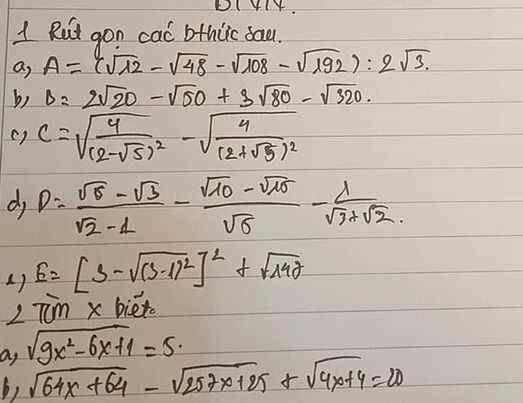 1 Rút gọn các bthức sau.
a, A = (√12 - √48 - √108 - √192) : 2√3.
b, B = 2√20 - √50 + 3√80 - √320.
c, C = √(4/(2-√5)²) - √(4/(2+√5)²)
d, D = (√6 - √3)/(√2 - 1) - (√10 - √15)/√5 - 1/(√3 + √2).
e, E = [3 - √(3-1)²]² +
2 Tìm x biết
a, √(9x² - 6x + 1) = 5.
b, √(64x + 64) - + √(4x + 4) = 20